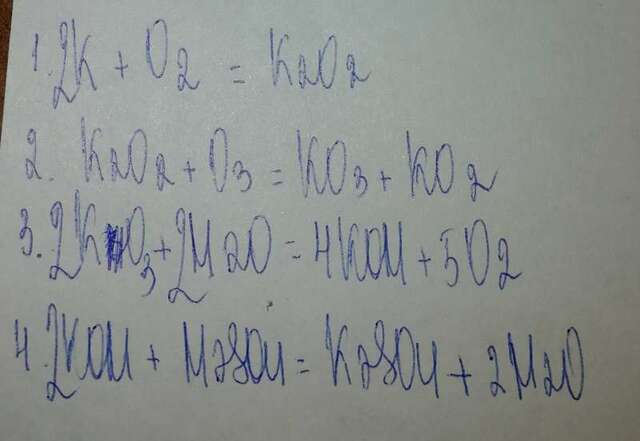 1. 2K + O2 = K2O2
2. K2O2 + O3 = KO3 + KO2
3. 2KO3 + 2H2O = 4KOH + 5O2
4. 2KOH + H2SO4 = K2SO4 + 2H2O